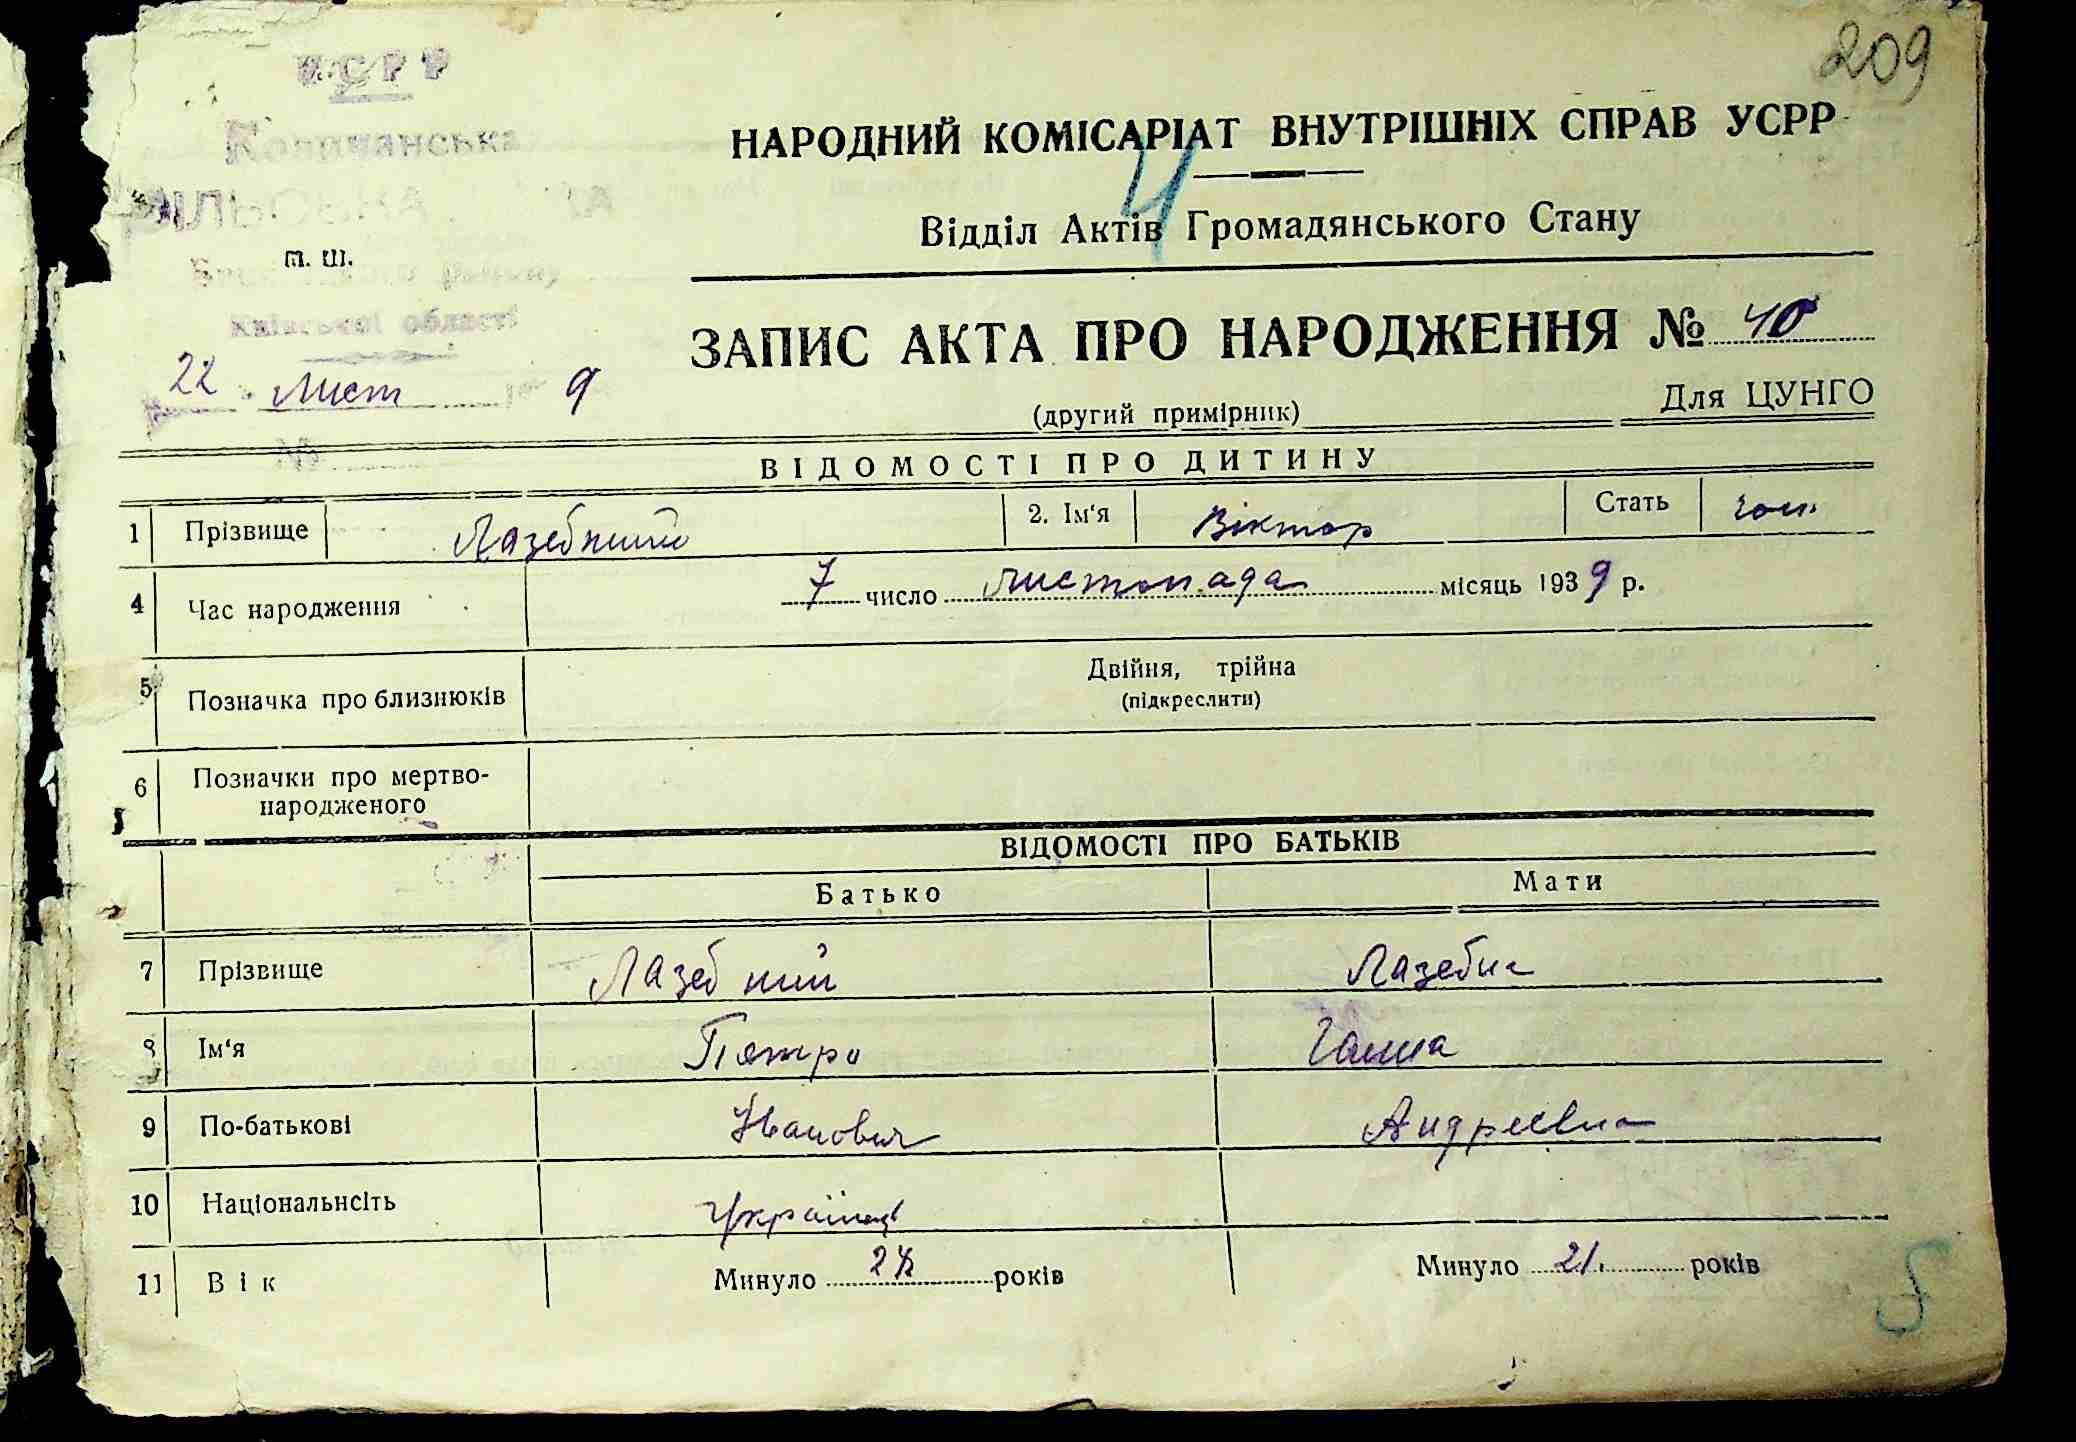 209
УСРР
НАРОДНИЙ КОМІСАРІАТ ВНУТРІШНІХ СПРАВ УСРР
4
Відділ Актів Громадянського Стану
т. ш.
району
Київської області
ЗАПИС АКТА ПРО НАРОДЖЕННЯ № 40
22 Лист 9
(другий примірник) Для ЦУНГО
№
ВІДОМОСТІ ПРО ДИТИНУ
1 Прізвище Лазебний 2. Ім'я Віктор Стать чол.
4 Час народження 7 число листопада місяць 1939 р.
5 Позначка про близнюків Двійня, трійна
(підкреслити)
6 Позначки про мертво-
народженого
ВІДОМОСТІ ПРО БАТЬКІВ
Батько Мати
7 Прізвище Лазебний Лазебна
8 Ім'я Петро Ганна
9 По-батькові Іванович Андреевна
10 Національнсіть Українці
11 Вік Минуло років Минуло 21. років
5